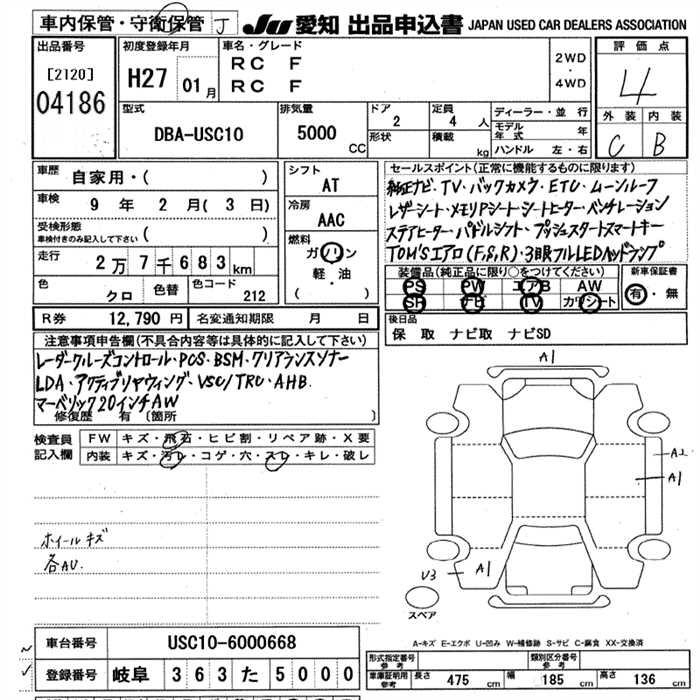 車内保管・守衛保管 J JU 愛知 出品申込書 JAPAN USED CAR DEALERS ASSOCIATION
出品番号
[2120]
04186
初度登録年月
H27 01月
車名・グレード
RC F
RC F
2WD
・
4WD
評価点
4
外装 内装
C B
型式
DBA-USC10
排気量
5000 CC
ドア
2
形状
定員
4 人
積載
kg
ディーラー・並行
モデル年式 年
ハンドル 左・右
車歴
自家用・( )
車検
9 年 2 月 ( 3 日)
受検形態
車検付きのみ記入して下さい ( )
走行
2万7千683km
色
クロ
色替
色コード
212
シフト
AT
冷房
AAC
燃料
ガソリン
軽・油
( )
セールスポイント(正常に機能するものに限ります)
純正ナビ・TV・バックカメラ・ETC・ムーンルーフ
レザーシート・メモリPシート・シートヒーター・ベンチレーション
ステアヒーター・パドルシフト・プッシュスタートスマートキー
TOM'Sエアロ(F,S,R)・3眼フルLEDヘッドランプ
装備品(純正品に限り○をつけてください)
PS PW エアB AW
SR ナビ TV カワシート
新車保証書
有・無
R券 12,790 円
名変通知期限 月 日
後日品
保 取 ナビ取 ナビSD
注意事項申告欄(不具合内容等は具体的に記入して下さい)
レーダークルーズコントロール・PCS・BSM・クリアランスソナー
LDA・アクティブリヤウィング・VSC/TRC・AHB
マーベリック20インチAW
修復歴 有 〔箇所 〕
検査員記入欄
FW キズ・飛石・ヒビ割・リペア跡・X要
内装 キズ・汚レ・コゲ・穴・スレ・キレ・破レ
ホイールキズ
各AU.
A1
A2
A1
U3
A1
スペア
A-キズ E-エクボ U-凹み W-補修跡 S-サビ C-腐食 XX-交換済
車台番号 USC10-6000668
登録番号 岐阜 363 た 5000
形式指定番号 参考
類別区分番号 参考
車庫証明用 参考
長さ 475 cm 幅 185 cm 高さ 136 cm